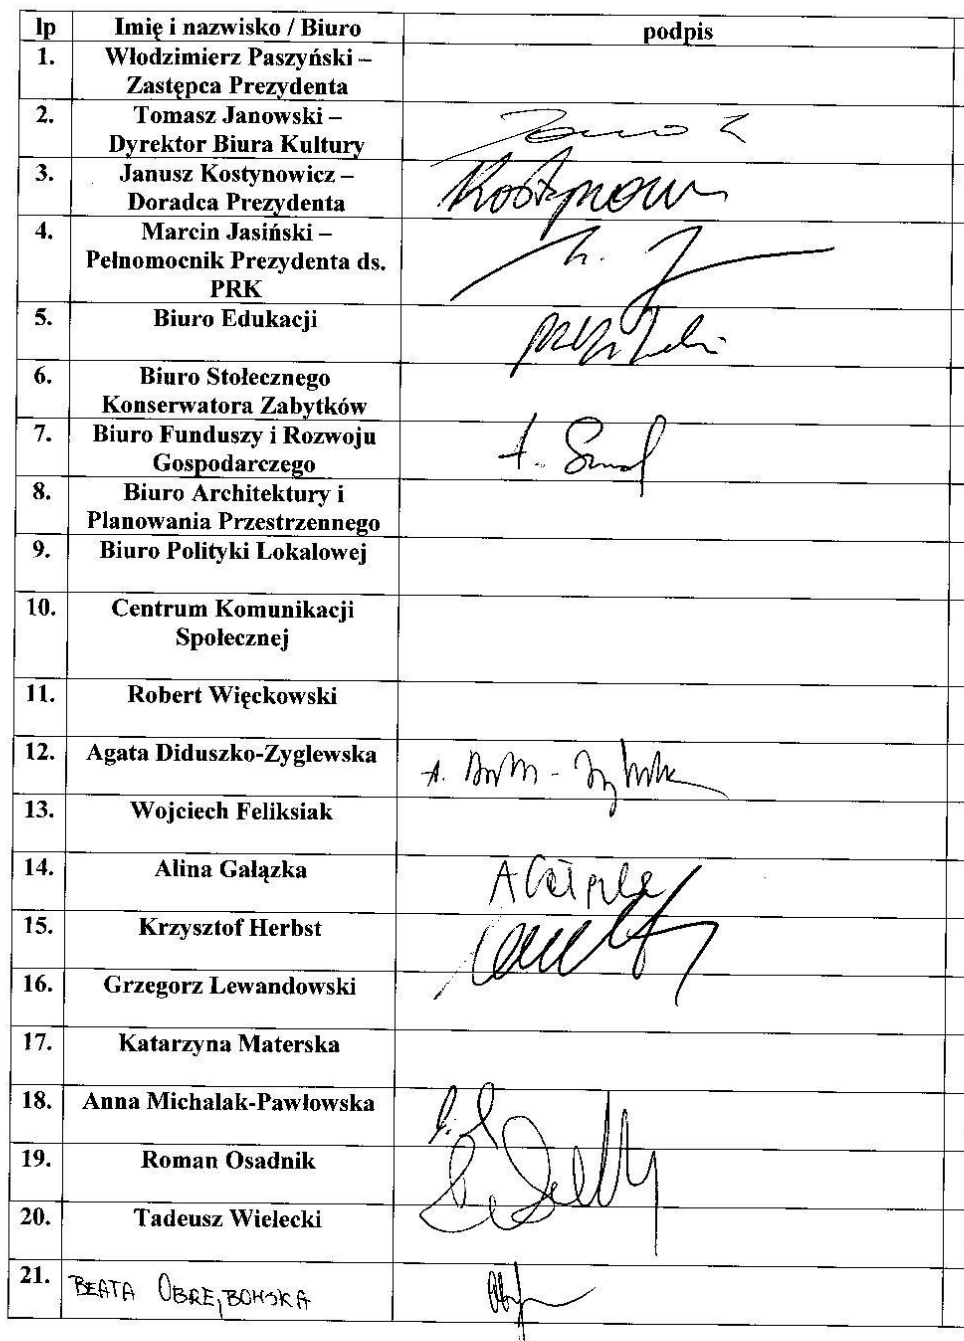 lp Imię i nazwisko / Biuro podpis
1. Włodzimierz Paszyński –
Zastępca Prezydenta
2. Tomasz Janowski –
Dyrektor Biura Kultury
3. Janusz Kostynowicz –
Doradca Prezydenta
4. Marcin Jasiński –
Pełnomocnik Prezydenta ds.
PRK
5. Biuro Edukacji
6. Biuro Stołecznego
Konserwatora Zabytków
7. Biuro Funduszy i Rozwoju
Gospodarczego
8. Biuro Architektury i
Planowania Przestrzennego
9. Biuro Polityki Lokalowej
10. Centrum Komunikacji
Społecznej
11. Robert Więckowski
12. Agata Diduszko-Zyglewska
13. Wojciech Feliksiak
14. Alina Gałązka
15. Krzysztof Herbst
16. Grzegorz Lewandowski
17. Katarzyna Materska
18. Anna Michalak-Pawłowska
19. Roman Osadnik
20. Tadeusz Wielecki
21. BEATA OBRĘBOWSKA